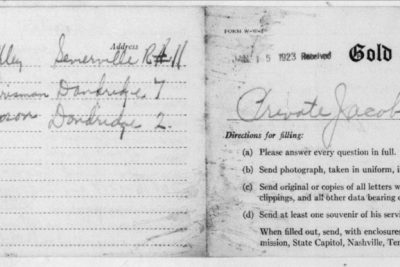 Address
lley Sevierville R#11
risman Dandridge 7
pson Dandridge 2.
FORM
15 1923 Received
Gold
Private Jacob
Directions for filing:
(a) Please answer every question in full.
(b) Send photograph, taken in uniform, i
(c) Send original or copies of all letters w
clippings, and all other data bearing o
(d) Send at least one souvenir of his servi
When filled out, send, with enclosures
mission, State Capitol, Nashville, Ten